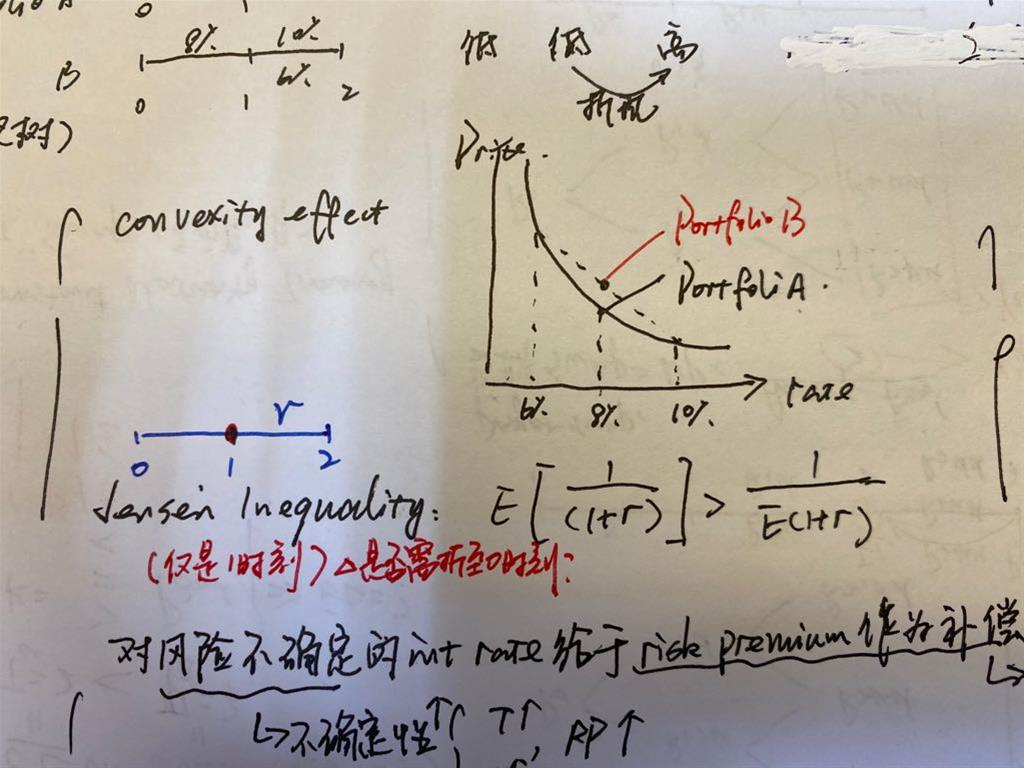 0 1
8% 10%
B 6%
0 1 2
低 低 高
折现
2
Price.
convexity effect
Portfolio B
Portfoli A.
6% 8% 10% rate
r
0 1 2
Jensen Inequality: E[1/(1+r)] > 1/E(1+r)
(仅是1时刻) △是否需折至0时刻?
对风险不确定的int rate给于risk premium作为补偿
↳不确定性↑ T↑, RP↑